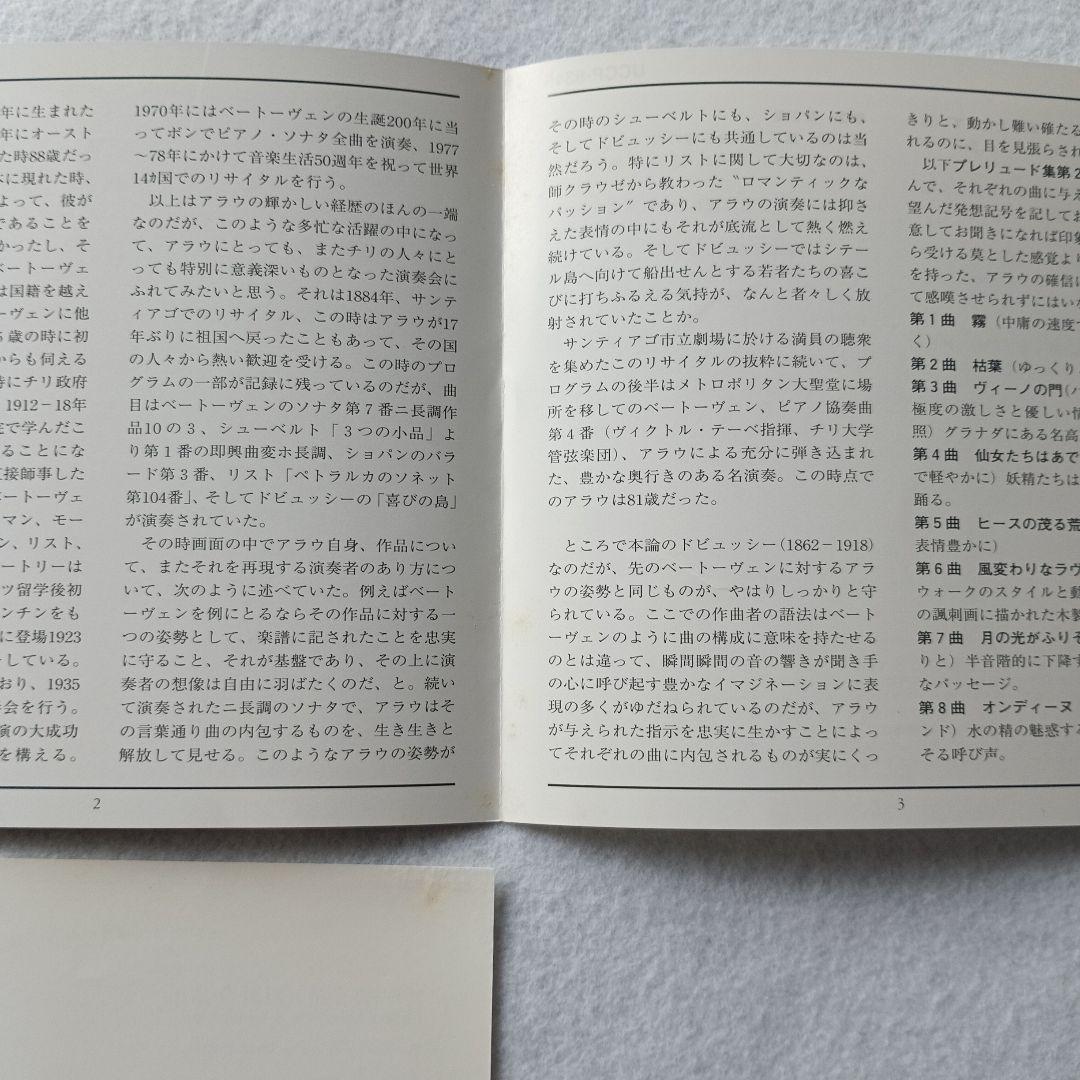 年に生まれた
年にオースト
た時88歳だっ
に現れた時、
よって、彼が
であることを
かったし、そ
ベートーヴェ
は国籍を越え
ーヴェンに他
歳の時に初
からも伺える
時にチリ政府
1912－18年
で学んだこ
ることにな
直接師事した
ベートーヴェ
マン、モー
ン、リスト、
ートリーは
ツ留学後初
ンチンをも
に登場1923
している。
おり、1935
会を行う。
演の大成功
を構える。
1970年にはベートーヴェンの生誕200年に当
ってボンでピアノ・ソナタ全曲を演奏、1977
～78年にかけて音楽生活50週年を祝って世界
14ヵ国でのリサイタルを行う。
以上はアラウの輝かしい経歴のほんの一端
なのだが、このような多忙な活躍の中になっ
て、アラウにとっても、またチリの人々にと
っても特別に意義深いものとなった演奏会に
ふれてみたいと思う。それは1884年、サンテ
ィアゴでのリサイタル、この時はアラウが17
年ぶりに祖国へ戻ったこともあって、その国
の人々から熱い歓迎を受ける。この時のプロ
グラムの一部が記録に残っているのだが、曲
目はベートーヴェンのソナタ第７番ニ長調作
品10の３、シューベルト「３つの小品」よ
り第１番の即興曲変ホ長調、ショパンのバラ
ード第３番、リスト「ペトラルカのソネット
第104番」、そしてドビュッシーの「喜びの島」
が演奏されていた。
その時画面の中でアラウ自身、作品につい
て、またそれを再現する演奏者のあり方につ
いて、次のように述べていた。例えばベート
ーヴェンを例にとるならその作品に対する一
つの姿勢として、楽譜に記されたことを忠実
に守ること、それが基盤であり、その上に演
奏者の想像は自由に羽ばたくのだ、と。続い
て演奏されたニ長調のソナタで、アラウはそ
の言葉通り曲の内包するものを、生き生きと
解放して見せる。このようなアラウの姿勢が
2
その時のシューベルトにも、ショパンにも、
そしてドビュッシーにも共通しているのは当
然だろう。特にリストに関して大切なのは、
師クラウゼから教わった〝ロマンティックな
パッション〟であり、アラウの演奏には抑さ
えた表情の中にもそれが底流として熱く燃え
続けている。そしてドビュッシーではシテー
ル島へ向けて船出せんとする若者たちの喜こ
びに打ちふるえる気持が、なんと者々しく放
射されていたことか。
サンティアゴ市立劇場に於ける満員の聴衆
を集めたこのリサイタルの抜粋に続いて、プ
ログラムの後半はメトロポリタン大聖堂に場
所を移してのベートーヴェン、ピアノ協奏曲
第４番（ヴィクトル・テーベ指揮、チリ大学
管弦楽団）、アラウによる充分に弾き込まれ
た、豊かな奥行きのある名演奏。この時点で
のアラウは81歳だった。
ところで本論のドビュッシー（1862－1918）
なのだが、先のベートーヴェンに対するアラ
ウの姿勢と同じものが、やはりしっかりと守
られている。ここでの作曲者の語法はベート
ーヴェンのように曲の構成に意味を持たせる
のとは違って、瞬間瞬間の音の響きが聞き手
の心に呼び起す豊かなイマジネーションに表
現の多くがゆだねられているのだが、アラウ
が与えられた指示を忠実に生かすことによっ
てそれぞれの曲に内包されるものが実にくっ
きりと、動かし難い確たる
れるのに、目を見張らされ
以下プレリュード集第2
んで、それぞれの曲に与え
望んだ発想記号を記してお
意してお聞きになれば印象
ら受ける莫とした感覚より
を持った、アラウの確信に
て感嘆させられずにはいな
第１曲　霧（中庸の速度で
く）
第２曲　枯葉（ゆっくり
第３曲　ヴィーノの門（ハ
極度の激しさと優しい情
照）グラナダにある名高
第４曲　仙女たちはあで
で軽やかに）妖精たちは
踊る。
第５曲　ヒースの茂る荒
表情豊かに）
第６曲　風変わりなラヴ
ウォークのスタイルと動
の諷刺画に描かれた木製
第７曲　月の光がふりそ
りと）半音階的に下降す
なパッセージ。
第８曲　オンディーヌ
ンド）水の精の魅惑する
そる呼び声。
3